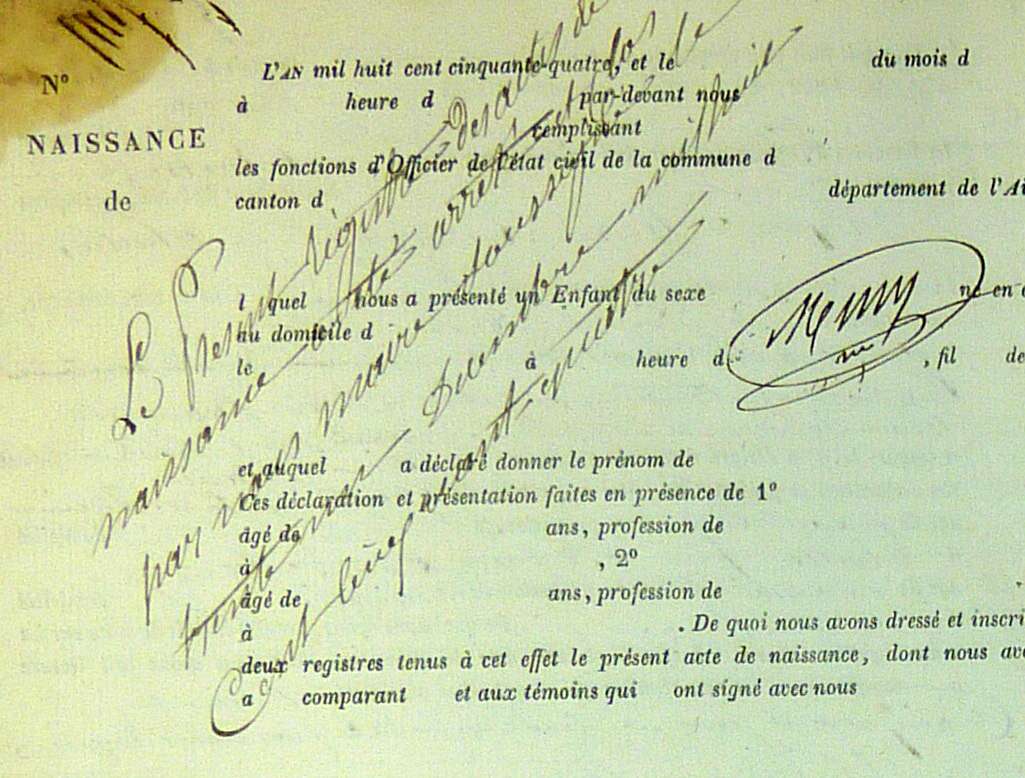 N° L'AN mil huit cent cinquante-quatre, et le du mois d
à heure d par-devant nous
NAISSANCE remplissant
les fonctions d'Officier de l'état civil de la commune d
de canton d département de l'Ai
l quel nous a présenté un Enfant du sexe né en c
au domicile d
le à heure d , fil de
et auquel a déclaré donner le prénom de
Ces déclaration et présentation faites en présence de 1°
âgé de ans, profession de
à , 2°
âgé de ans, profession de
à . De quoi nous avons dressé et inscri
deux registres tenus à cet effet le présent acte de naissance, dont nous avo
a comparant et aux témoins qui ont signé avec nous
Le présent registre des actes de
naissance a été arrêté et clos
par nous maire soussigné le
trente un Decembre mil huit
cent cinq cent quatre